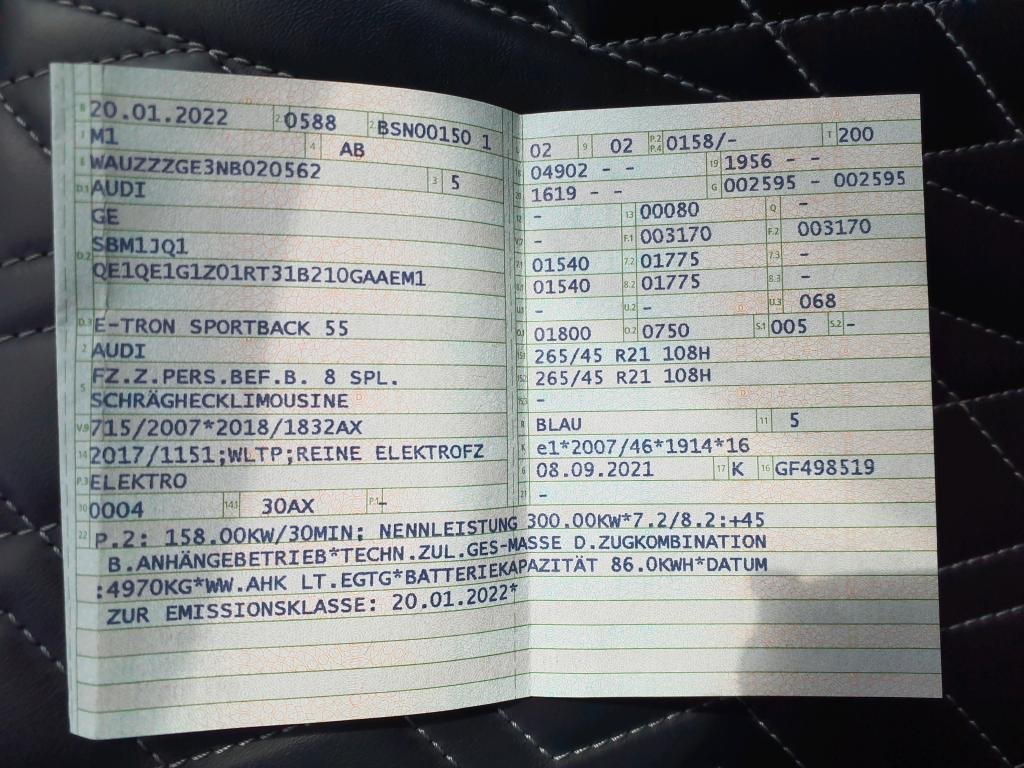 B 20.01.2022 2.1 0588 2.2 BSN00150 1
J M1 4 AB
E WAUZZZGE3NB020562 3 5
D.1 AUDI
GE
D.2 SBM1JQ1
QE1QE1G1Z01RT31B210GAAEM1
D.3 E-TRON SPORTBACK 55
2 AUDI
5 FZ.Z.PERS.BEF.B. 8 SPL.
SCHRÄGHECKLIMOUSINE
V.9 715/2007*2018/1832AX
14 2017/1151;WLTP;REINE ELEKTROFZ
P.3 ELEKTRO
10 0004 14.1 30AX P.1 -
L 02 9 02 P.2 P.4 0158/- T 200
18 04902 - - 19 1956 - -
20 1619 - - G 002595 - 002595
12 - 13 00080 Q -
V.7 - F.1 003170 F.2 003170
7.1 01540 7.2 01775 7.3 -
8.1 01540 8.2 01775 8.3 -
U.1 - U.2 - U.3 068
O.1 01800 O.2 0750 S.1 005 S.2 -
15.1 265/45 R21 108H
15.2 265/45 R21 108H
15.3 -
R BLAU 11 5
K e1*2007/46*1914*16
6 08.09.2021 17 K 16 GF498519
21 -
22 P.2: 158.00KW/30MIN; NENNLEISTUNG 300.00KW*7.2/8.2:+45
B.ANHÄNGEBETRIEB*TECHN.ZUL.GES-MASSE D.ZUGKOMBINATION
:4970KG*WW.AHK LT.EGTG*BATTERIEKAPAZITÄT 86.0KWH*DATUM
ZUR EMISSIONSKLASSE: 20.01.2022*